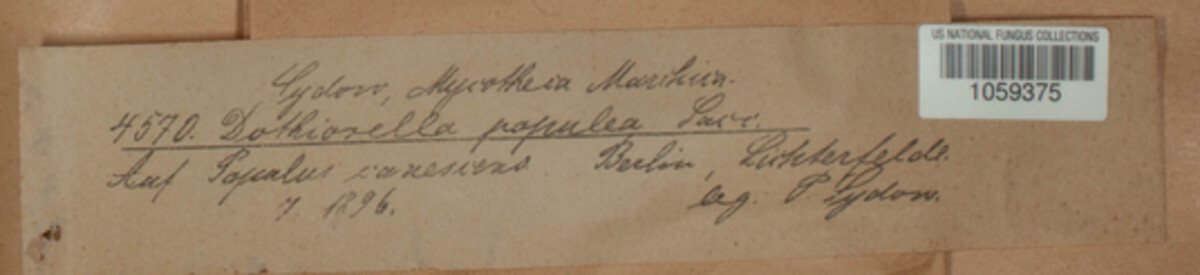 Sydow, Mycotheca Marchica.
4570. Dothiorella populea Sacc.
Auf Populus canescens Berlin, Lichterfelde.
7. 1896. leg. P. Sydow.
US NATIONAL FUNGUS COLLECTIONS
1059375